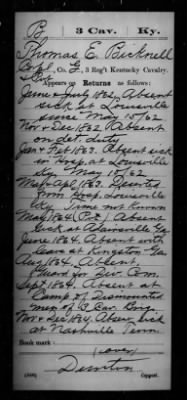 B | 3 Cav. | Ky.
Thomas E. Bicknell
Corpl, Co. G, 3 Reg't Kentucky Cavalry.
Appears on Returns as follows:
June & July 1862, Absent
sick at Louisville
since May 15/62
Nov & Dec 1862 Absent
on det duty
Jan & Feb 1863. Absent sick
in Hosp. at Louisville
Ky. May 15/62
Mar & Apl 1863. Deserted
from Hosp. Louisville
Ky. time not known
May 1864 (Pvt.) Absent
sick at Adairsville Ga
June 1864. Absent with
leave at Kingston Ga
Aug 1864. Absent,
Guard for Div. Com.
Sept 1864. Absent at
Camp of Dismounted
men of 3 Cav. Brig.
Nov & Dec 1864. Absent sick
at Nashville Tenn.
Book mark:
(over)
Copyist.